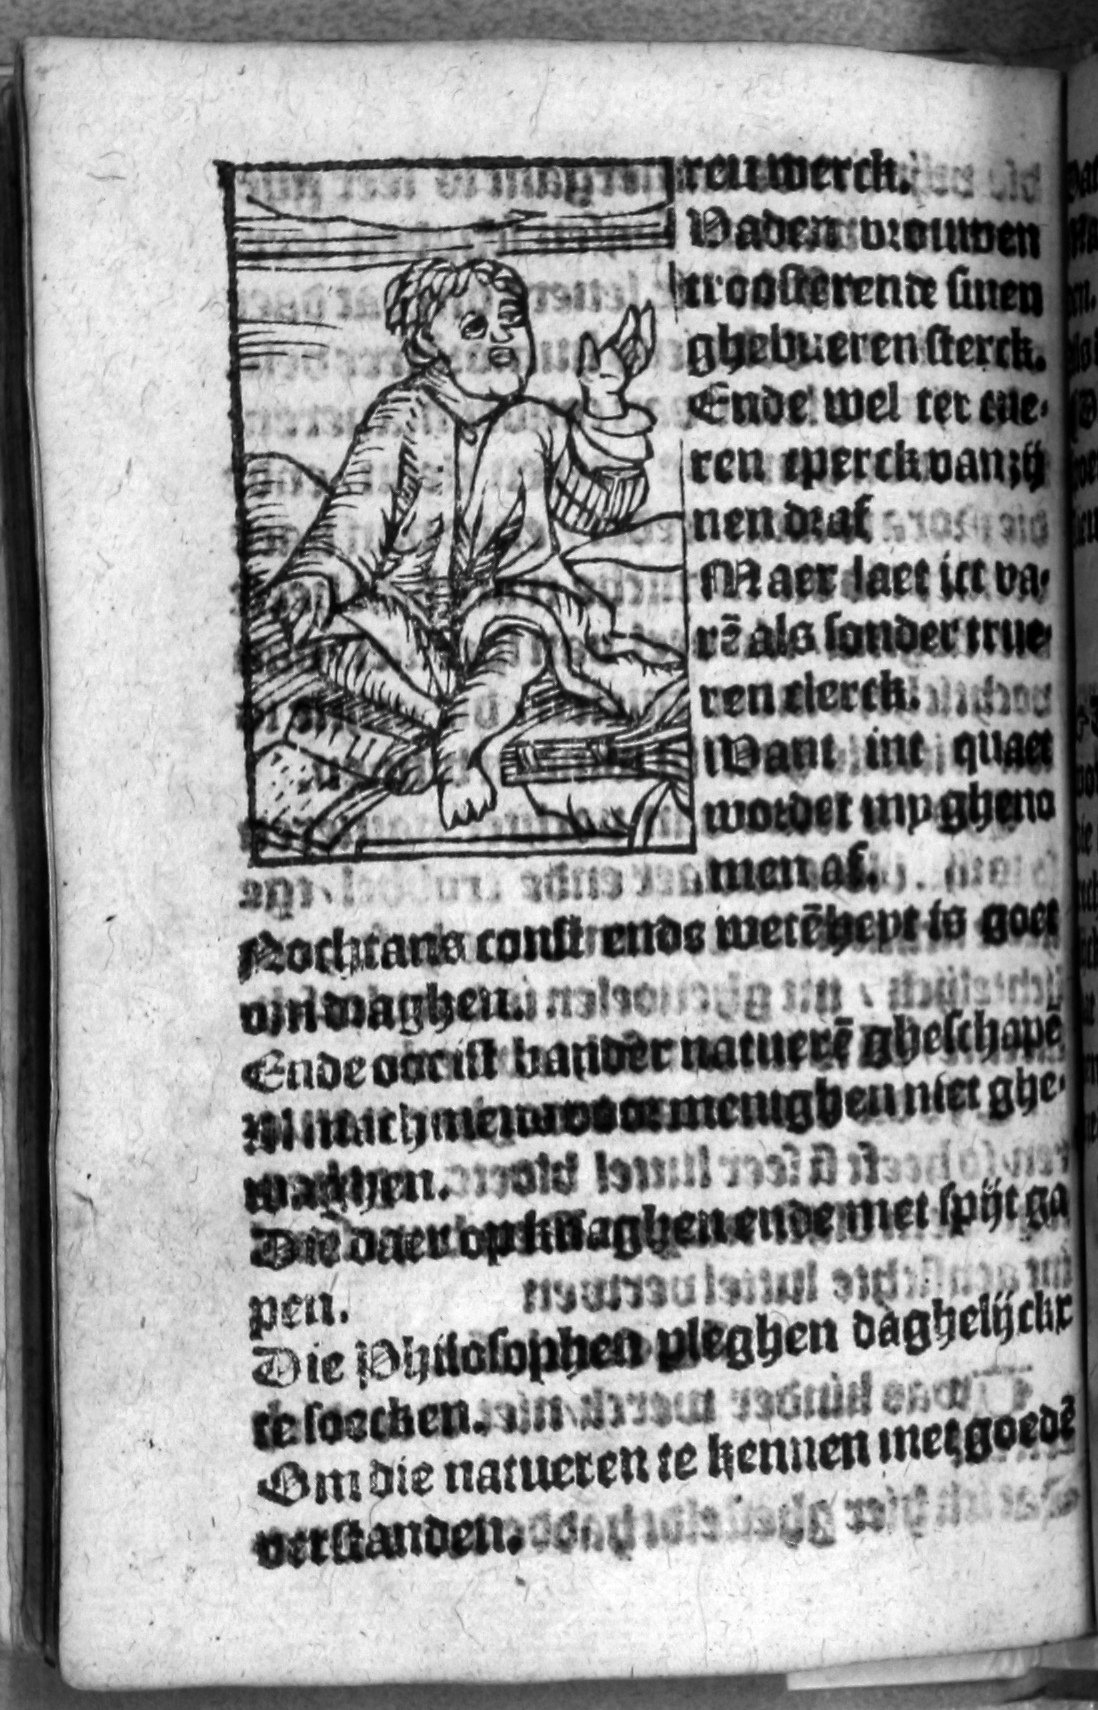 ren werck.
Vaden vrouwen
troosterende sinen
ghebueren sterck.
Ende wel ter eue-
ren tperck van zij
nen draf
Maer laet ict va-
rē als sonder true
ren clerck.
Want int quaet
wordet my gheno
men af.
Nochtans const ende wetēheyt is goet
om draghen.
Ende oor ist vander natuerē gheschapē
Al mach men voor menighen niet ghe-
waghen.
Die daer op knaghen ende met spijt ga
pen.
Die Philosophen pleghen daghelijckx
te soecken.
Om die natueren te kennen met goedē
verstanden.